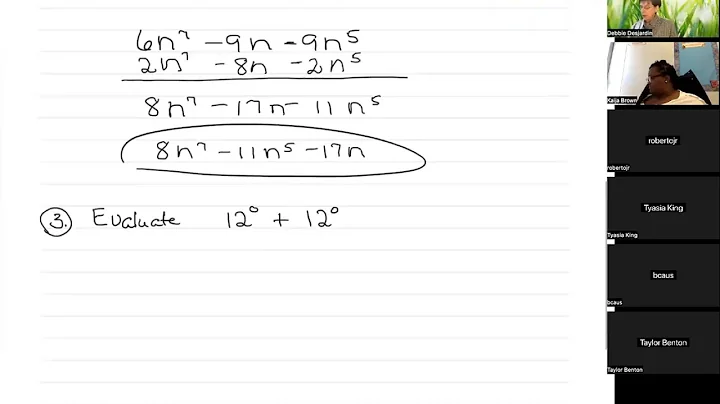 6n⁷ - 9n - 9n⁵
2n⁷ - 8n - 2n⁵
8n⁷ - 17n - 11n⁵
8n⁷ - 11n⁵ - 17n
3. Evaluate 12⁰ + 12⁰
Debbie Desjardin
Kaija Brown
robertojr
robertojr
Tyasia King
Tyasia King
bcaus
bcaus
Taylor Benton
Taylor Benton